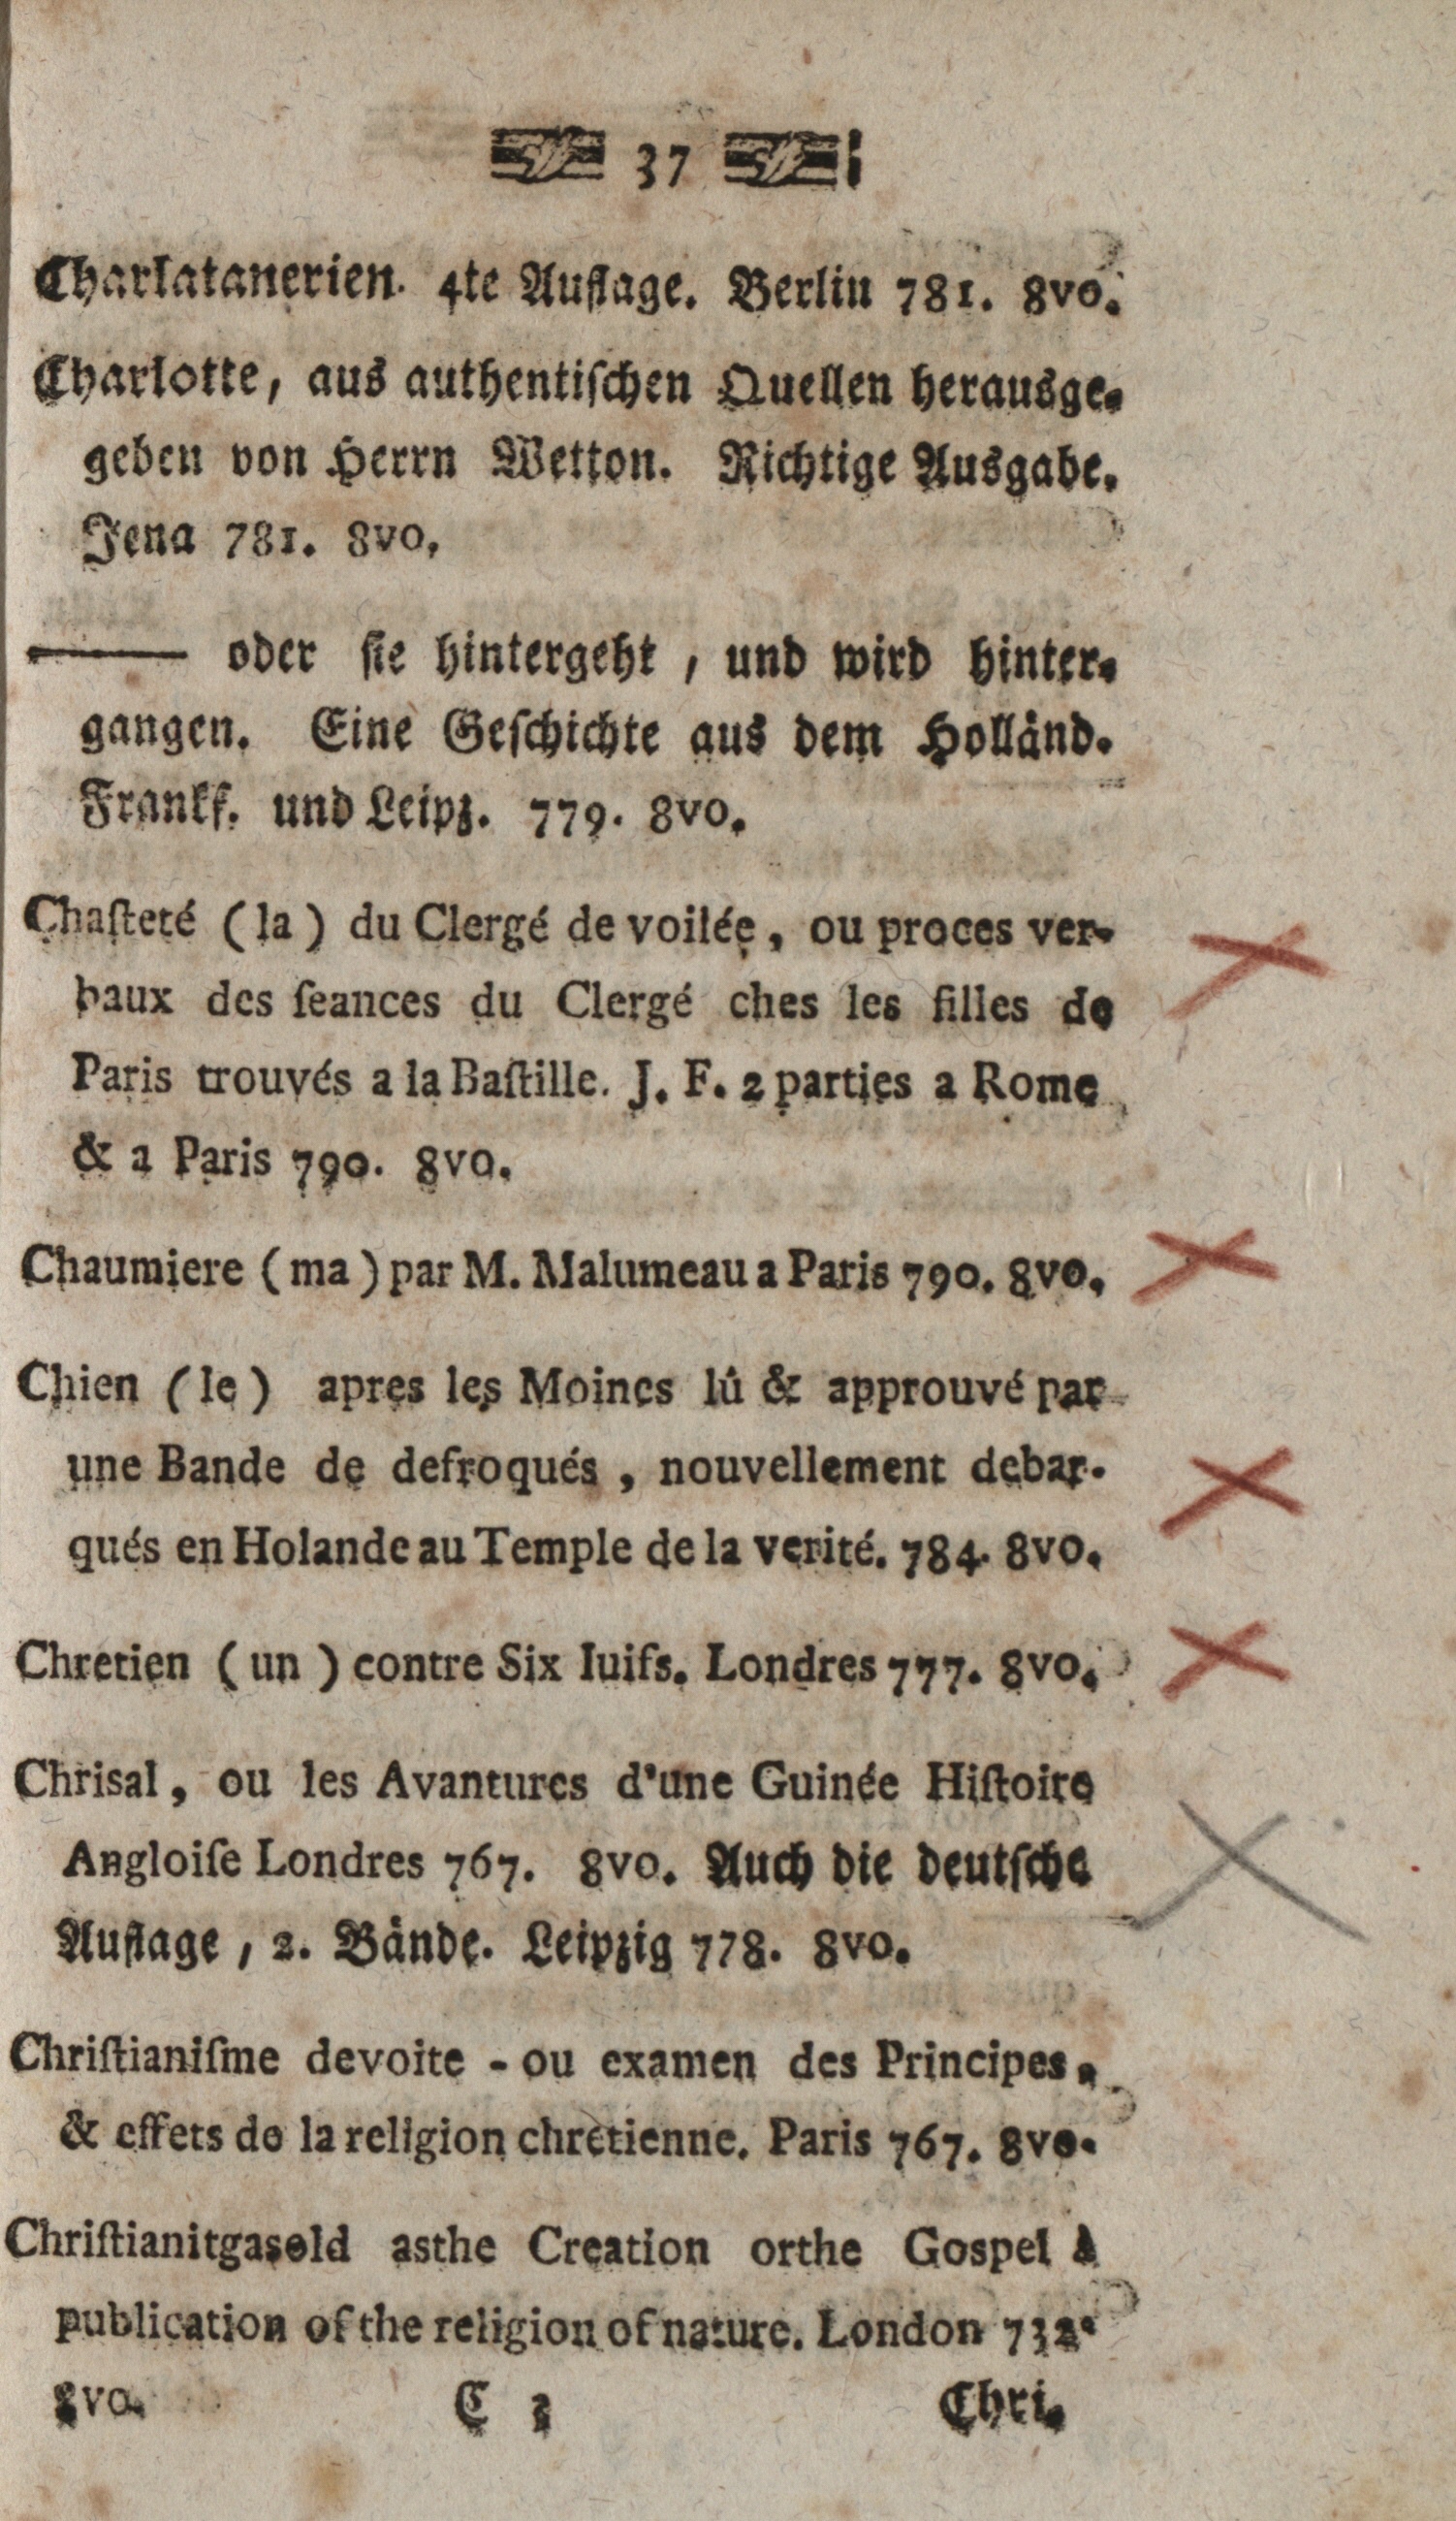 37
Charlatanerien. 4te Auflage. Berlin 781. 8vo.
Charlotte, aus authentiſchen Quellen herausge-
geben von Herrn Wetton. Richtige Ausgabe.
Jena 781. 8vo.
——— oder ſie hintergeht, und wird hinter-
gangen. Eine Geſchichte aus dem Holländ.
Frankf. und Leipz. 779. 8vo.
Chaſteté (la) du Clergé de voilée, ou proces ver-
baux des ſeances du Clergé ches les filles de
Paris trouvés a la Baſtille. J. F. 2 parties a Rome
& a Paris 790. 8vo.
Chaumiere (ma) par M. Malumeau a Paris 790. 8vo.
Chien (le) apres les Moines lû & approuvé par
une Bande de defroqués, nouvellement debar-
qués en Holande au Temple de la verité. 784. 8vo.
Chretien (un) contre Six Iuifs. Londres 777. 8vo.
Chrisal, ou les Avantures d'une Guinée Hiſtoire
Angloiſe Londres 767. 8vo. Auch die deutſche
Auflage, 2. Bände. Leipzig 778. 8vo.
Chriſtianiſme devoite - ou examen des Principes,
& effets de la religion chrétienne. Paris 767. 8vo.
Chriſtianitgasold asthe Creation orthe Gospel à
publication of the religion of nature. London 732.
8vo. C 3 Chri-